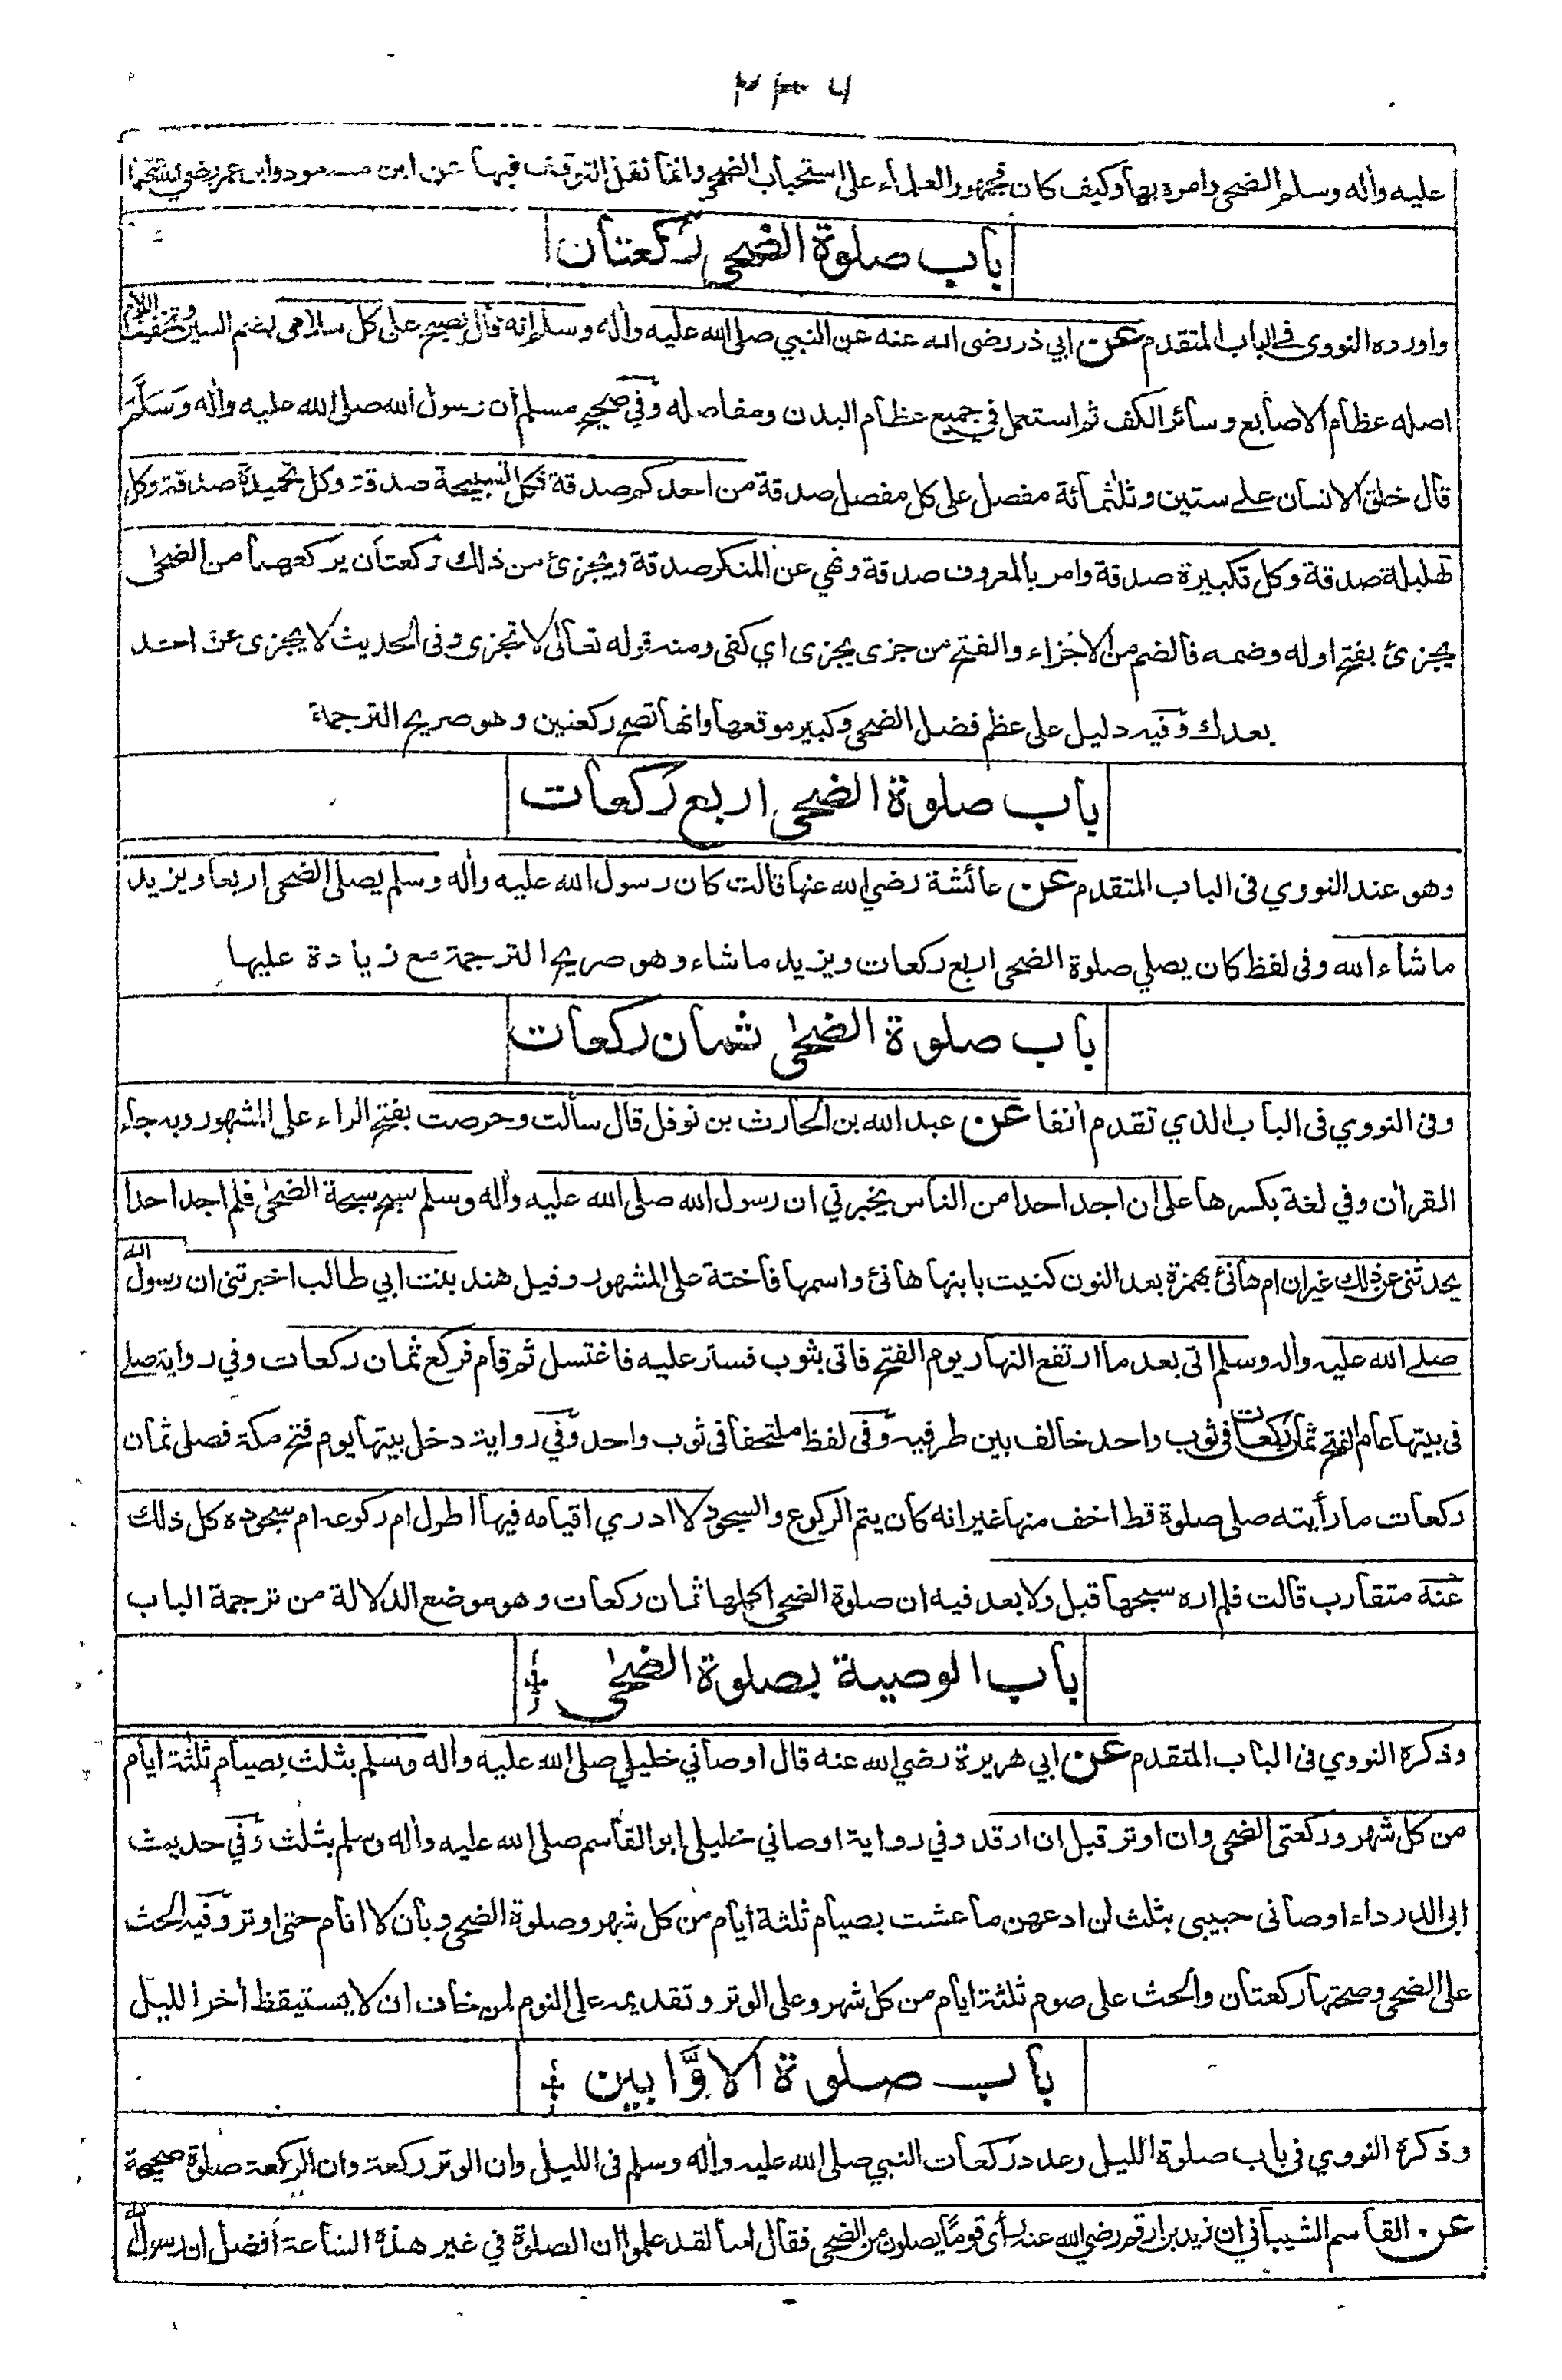 عليه واٰله وسلم الضحى وامره بها وكيف كان فجمهور العلماء على استحباب الضحى وانما نقل التوقف فيها عن ابن مسعود وابن عمر رضي الله عنهما
باب صلوة الضحى ركعتان
واورده النووى فى الباب المتقدم عن ابي ذر رضى الله عنه عن النبي صلى الله عليه واٰله وسلم انه قال يصبح على كل سلامى بضم السين وتخفيف اللام
اصله عظام الاصابع وسائر الكف ثم استعمل في جميع عظام البدن ومفاصله وفي صحيح مسلم أن رسول الله صلى الله عليه واٰله وسَلَّم
قال خلق الانسان على ستين وثلثمائة مفصل على كل مفصل صدقة من احدكم صدقة فكل تسبيحة صدقة وكل تحميدة صدقة وكل
تهليلة صدقة وكل تكبيرة صدقة وامر بالمعروف صدقة ونهي عن المنكر صدقة ويجزئ من ذلك ركعتان يركعهما من الضحىٰ
يجزئ بفتح اوله وضمه فالضم من الاجزاء والفتح من جزى يجزى اي كفى ومنه قوله تعالى لا تجزى وفى الحديث لا يجزى عن احد
بعدك وفيه دليل على عظم فضل الضحى وكبير موقعها وانها تصح ركعتين وهو صريح الترجمة
باب صلوة الضحى اربع ركعات
وهو عند النووي فى الباب المتقدم عن عائشة رضي الله عنها قالت كان رسول الله عليه واٰله وسلم يصلى الضحى اربعا ويزيد
ما شاء الله وفى لفظ كان يصلي صلوة الضحى اربع ركعات ويزيد ما شاء وهو صريح الترجمة مع زيادة عليها
باب صلوة الضحىٰ ثمان ركعات
وفى النووي فى الباب الذي تقدم اٰنفا عن عبد الله بن الحارث بن نوفل قال سألت وحرصت بفتح الراء على المشهور وبه جاء
القراٰن وفي لغة بكسرها على ان اجد احدا من الناس يخبرني ان رسول الله صلى الله عليه واٰله وسلم سبح سبحة الضحىٰ فلم اجد احدا
يحدثنى عن ذلك غير ان ام هانئ بهمزة بعد النون كنيت بابنها هانئ واسمها فاختة على المشهور وقيل هند بنت ابي طالب اخبرتنى ان رسول الله
صلے الله عليه واٰله وسلم اتى بعد ما ارتفع النهار يوم الفتح فاتى بثوب فستر عليه فاغتسل ثم قام فركع ثمان ركعات وفي رواية صلے
فى بيتها عام الفتح ثمان ركعات فى ثوب واحد خالف بين طرفيه وفى لفظ ملتحفا فى ثوب واحد وفي رواية دخل بيتها يوم فتح مكة فصلى ثمان
ركعات ما رأيته صلى صلوة قط اخف منها غير انه كان يتم الركوع والسجود لا ادري اقيامه فيها اطول ام ركوعه ام سجوده كل ذلك
منه متقارب قالت فلم اره سبحها قبل ولا بعد فيه ان صلوة الضحى اكملها ثمان ركعات وهو موضع الدلالة من ترجمة الباب
باب الوصية بصلوة الضحىٰ
وذكره النووي فى الباب المتقدم عن ابي هريرة رضي الله عنه قال اوصاني خليلي صلى الله عليه واٰله وسلم بثلث بصيام ثلٰثة ايام
من كل شهر وركعتى الضحى وان اوتر قبل ان ارقد وفي رواية اوصاني خليلى ابو القاسم صلى الله عليه واٰله وسلم بثلث وفي حديث
ابى الدرداء اوصانى حبيبى بثلث لن ادعهن ما عشت بصيام ثلثة ايام من كل شهر وصلوة الضحى وبان لا انام حتى اوتر وفيه الحث
على الضحى وصحتها ركعتان والحث على صوم ثلثة ايام من كل شهر وعلى الوتر وتقديمه على النوم لمن خاف ان لا يستيقظ اٰخر الليل
باب صلوة الاوَّابين
وذكره النووي فى باب صلوة الليل وعدد ركعات النبي صلى الله عليه واٰله وسلم فى الليل وان الوتر ركعة وان الركعة صلوة صحيحة
عن القاسم الشيبانى ان زيد بن ارقم رضي الله عنه رأى قوماً يصلون من الضحى فقال اما لقد علموا ان الصلوة في غير هذه الساعة أفضل ان رسول الله